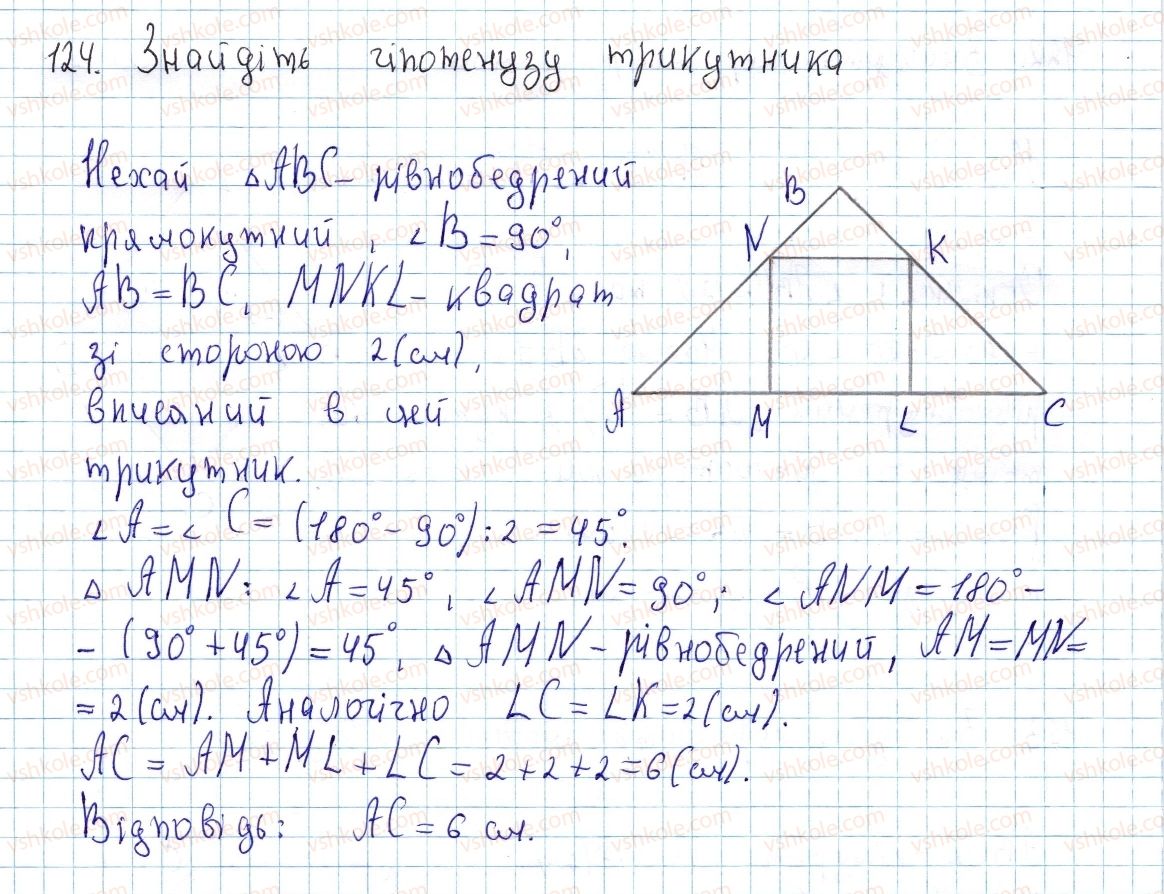 124. Знайдіть гіпотенузу трикутника
Нехай △ABC – рівнобедрений
прямокутний, ∠B = 90°,
AB = BC, MNKL – квадрат
зі стороною 2 (см),
вписаний в цей
трикутник.
B
N
K
A
M
L
C
∠A = ∠C = (180° – 90°) : 2 = 45°.
△ AMN: ∠A = 45°, ∠AMN = 90°; ∠ANM = 180° –
– (90° + 45°) = 45°, △ AMN – рівнобедрений, AM = MN =
= 2 (см). Аналогічно LC = LK = 2 (см).
AC = AM + ML + LC = 2 + 2 + 2 = 6 (см).
Відповідь: AC = 6 см.
vshkole.com